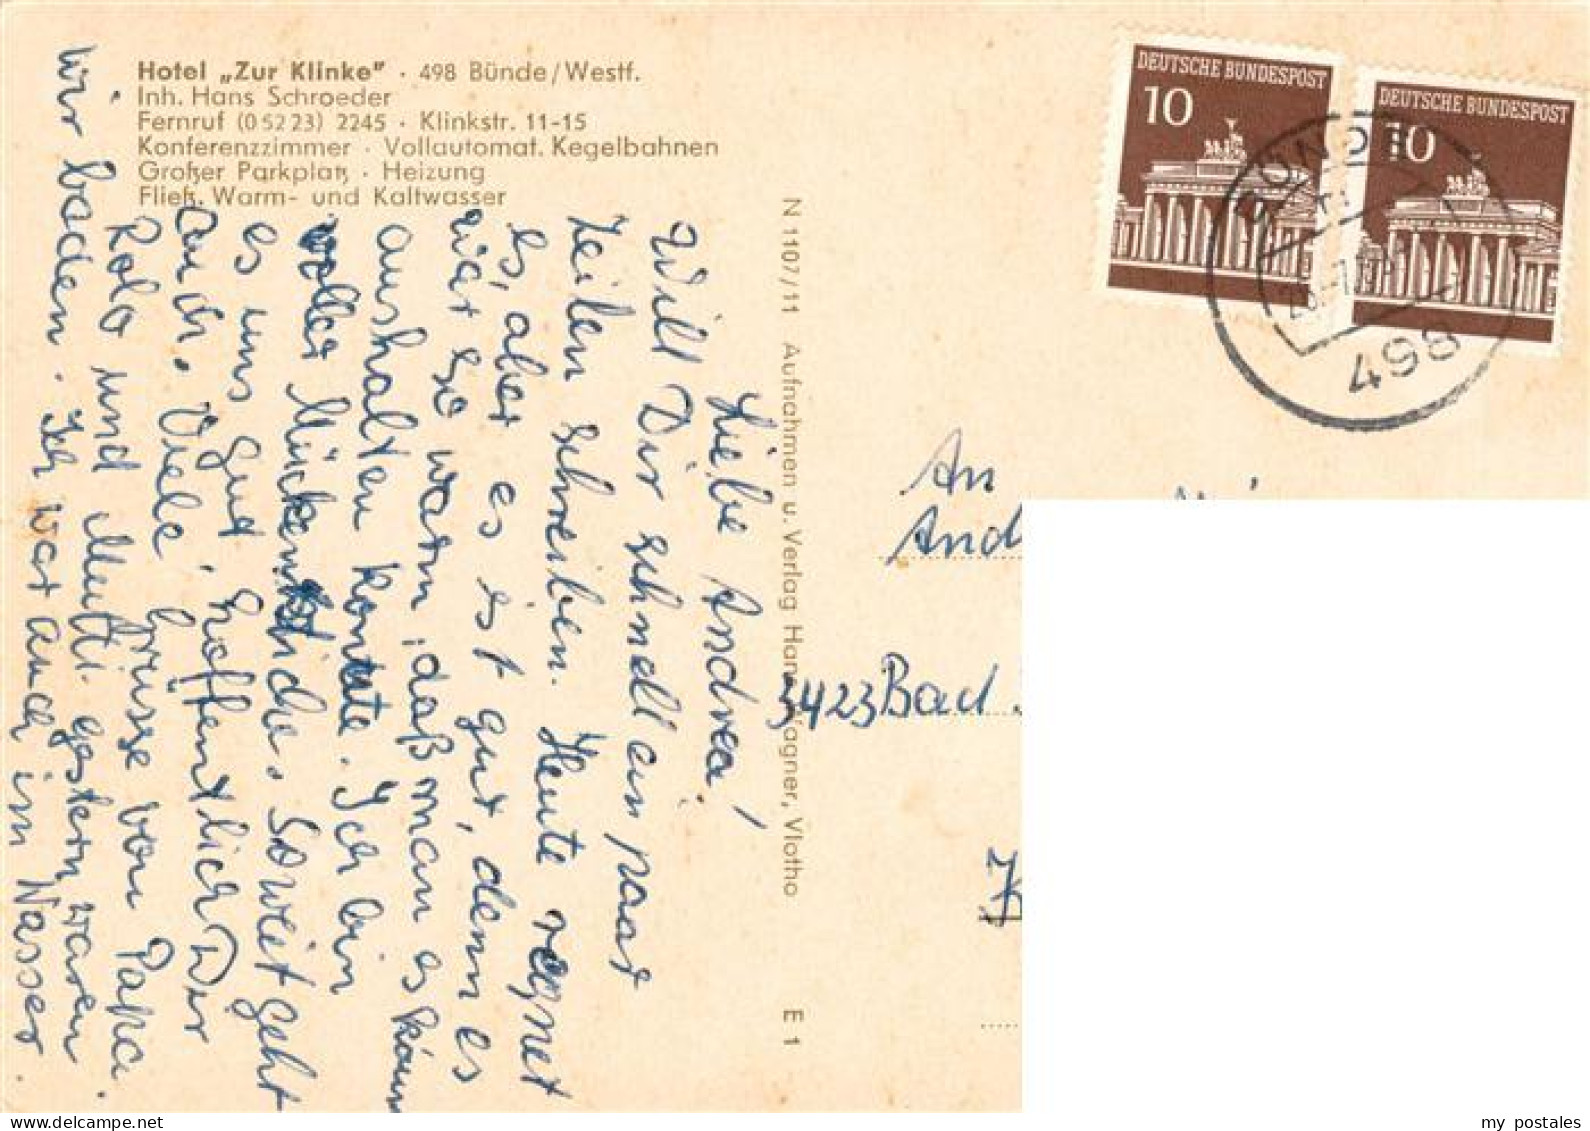 Hotel „Zur Klinke" · 498 Bünde/Westf.
Inh. Hans Schroeder
Fernruf (0 52 23) 2245 · Klinkstr. 11-15
Konferenzzimmer · Vollautomat. Kegelbahnen
Großer Parkplatz · Heizung
Fließ. Warm- und Kaltwasser
Liebe Andrea!
Will Dir schnell ein paar
Zeilen schreiben. Heute regnet
es, aber es ist gut, denn es
war so warm, daß man es kaum
aushalten konnte. Ich bin
voller Mückenstiche. Soweit geht
es uns gut, hoffentlich Dir
auch. Viele Grüsse von Papa.
Rolo und Mutti. gestern waren
wir baden. Ich war auch im Wasser.
N 1107/11 Aufnahmen u. Verlag Hans Wagner, Vlotho E 1
DEUTSCHE BUNDESPOST
10
DEUTSCHE BUNDESPOST
10
BÜNDE
498
An
And
3423 Bad
my postales